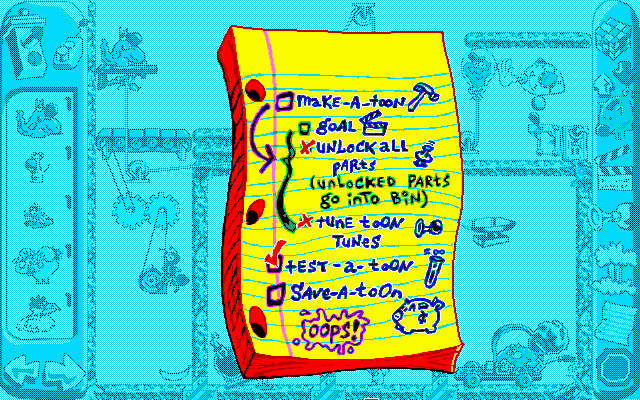 MaKE-A-tooN
goAL
UNLOCK aLL
PaRtS
(UNLOCKED PARtS
go iNtO BiN)
tUNE tooN
TUNES
tEST-a-tooN
SAve-A-toOn
OOPS!